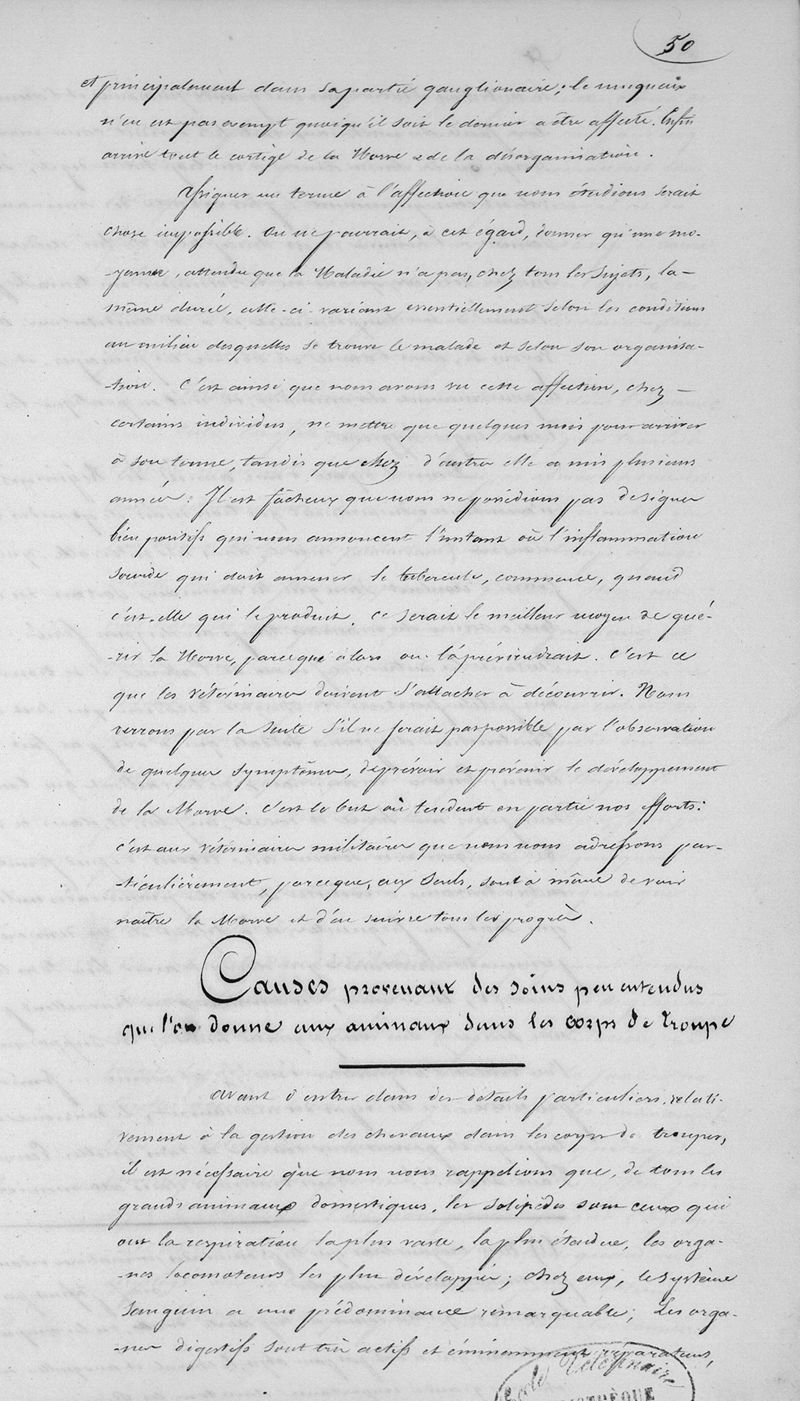 50
et principalement dans sa partie ganglionaire; le muqueux
n'en est pas exempt quoiqu'il soit le dernier a être affecté. Enfin
arrive tout le cortège de la Morve & de la désorganisation.
Assigner un terme à l'affection que nous étudions serait
chose impossible. On ne pourrait, à cet égard, donner qu'une mo-
-yenne, attendu que la Maladie n'a pas, chez tous les sujets, la
même durée, celle-ci variant essentiellement selon les conditions
au milieu desquelles se trouve le malade et selon son organisa-
-tion. C'est ainsi que nous avons vu cette affection, chez –
certains individus, ne mettre que quelques mois pour arriver
à son terme, tandis que chez d'autres elle a mis plusieurs
années. Il est fâcheux que nous ne possédions pas de signes
bien positifs qui nous annoncent l'instant où l'inflammation
sourde qui doit amener le tubercule, commence, quand
c'est elle qui le produit. Ce serait le meilleur moyen de gué-
-rir la Morve, parceque alors on la préviendrait. C'est ce
que les vétérinaires doivent s'attacher à découvrir. Nous
verrons par la suite s'il ne serait pas possible par l'observation
de quelques symptômes, de prévoir et prévenir le développement
de la Morve. C'est le but où tendent en partie nos efforts:
c'est aux vétérinaires militaires que nous nous adressons par-
-ticulièrement, parceque, eux seuls, sont à même de voir
naître la Morve et d'en suivre tous les progrès.
Causes provenant des soins peu entendus
que l'on donne aux animaux dans les corps de troupe
avant d'entrer dans des détails particuliers, relati-
-vement à la gestion des chevaux dans les corps de troupes,
il est nécessaire que nous nous rappelions que, de tous les
grands animaux domestiques, les solipèdes sont ceux qui
ont la respiration la plus vaste, la plus étendue, les orga-
-nes locomoteurs les plus développés; chez eux, le système
sanguin a une prédominance remarquable; Les orga-
-nes digestifs sont très actifs et éminemment réparateurs,
Ecole Vétérinaire